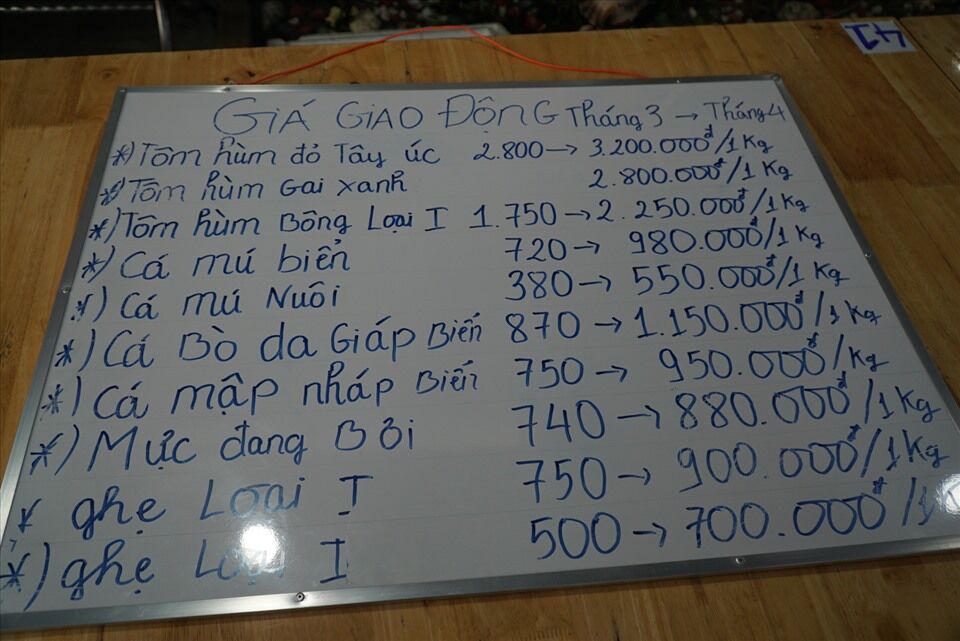 GIÁ GIAO ĐỘNG Tháng 3 → Tháng 4
*) Tôm hùm đỏ Tây úc 2.800 → 3.200.000đ/1 Kg
*) Tôm hùm Gai xanh 2.800.000đ/1 Kg
*) Tôm hùm Bông Loại I 1.750 → 2.250.000đ/1Kg
*) Cá mú biển 720 → 980.000đ/1 Kg
*) Cá mú Nuôi 380 → 550.000đ/1 Kg
*) Cá Bò da Giáp Biển 870 → 1.150.000đ/1 Kg
*) Cá mập nháp Biển 750 → 950.000đ/Kg
*) Mực đang Bơi 740 → 880.000đ/1 Kg
* ghẹ Loại I 750 → 900.000đ/1 Kg
*) ghẹ Loại I 500 → 700.000đ/1